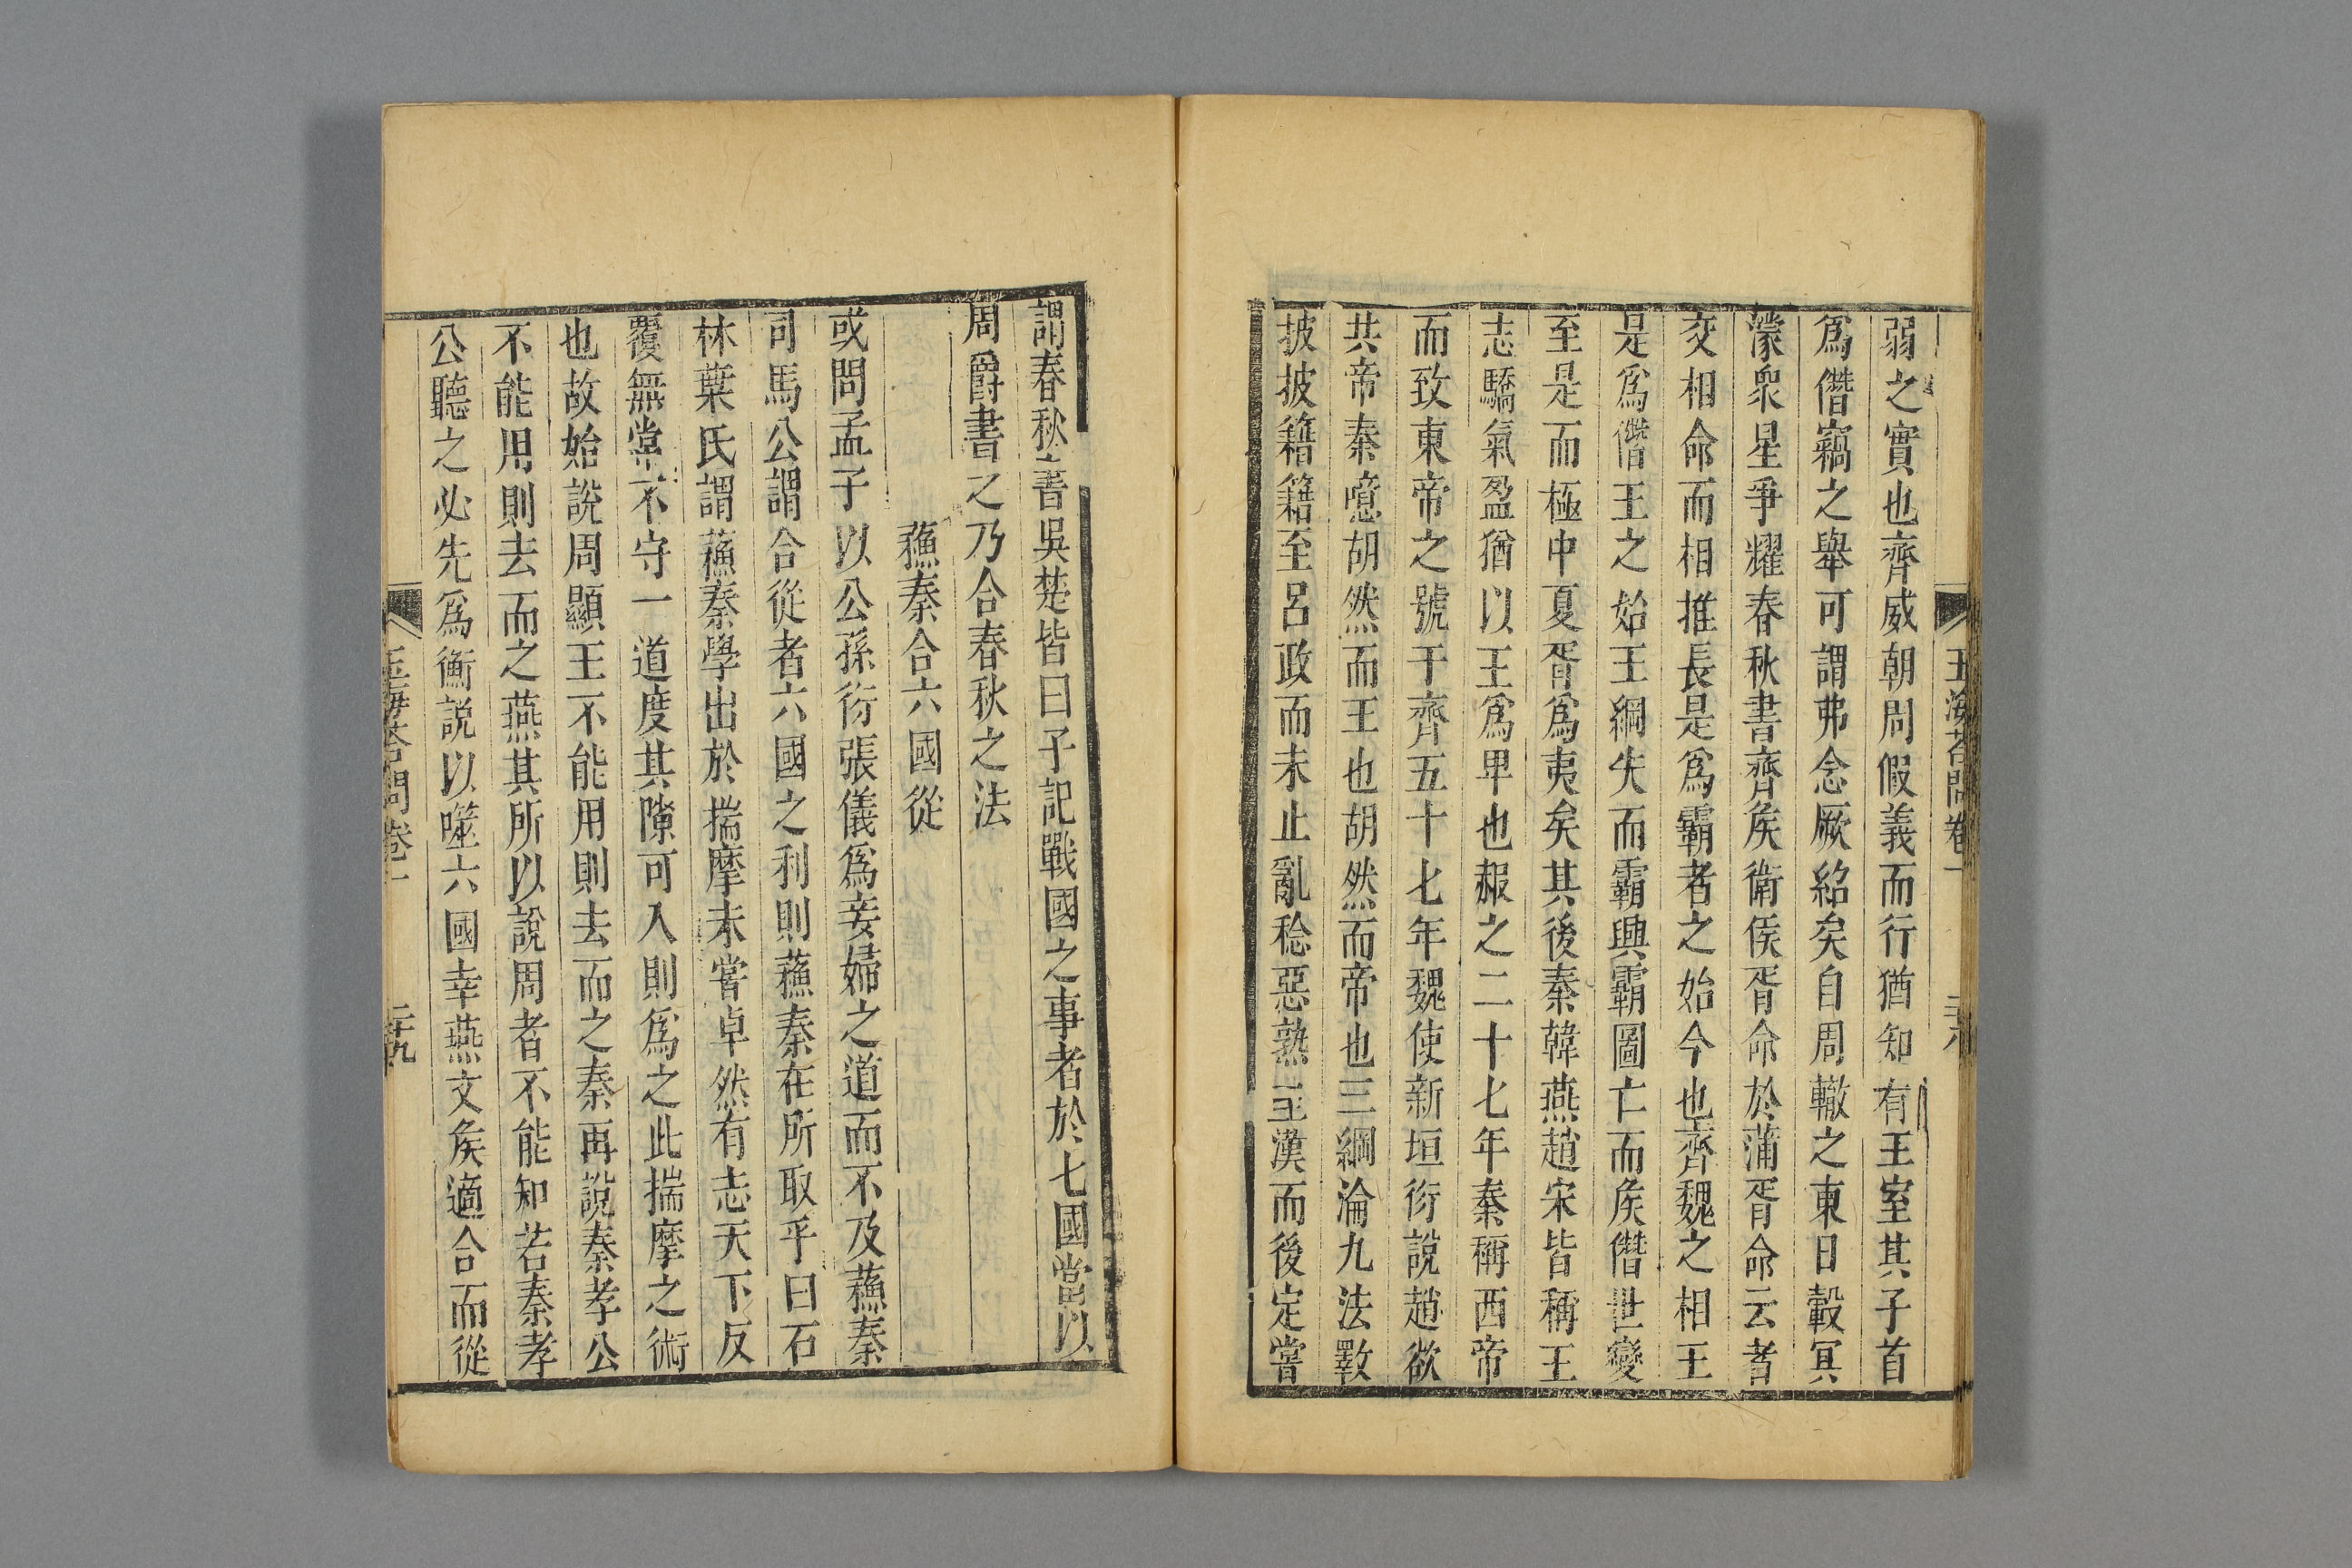 弱之實也齊威朝周假義而行猶知有王室其子首
爲僭竊之舉可謂弗念厥紹矣自周轍之東日轂冥
濛衆星爭耀春秋書齊矦衛矦胥命於蒲胥命云者
交相命而相推長是爲霸者之始今也齊魏之相王
是爲僭王之始王綱失而霸興霸圖亡而矦僭世變
至是而極中夏胥爲夷矣其後秦韓燕趙宋皆稱王
志驕氣盈猶以王爲卑也赧之二十七年秦稱西帝
而致東帝之號于齊五十七年魏使新垣衍說趙欲
共帝秦噫胡然而王也胡然而帝也三綱淪九法斁
披披籍籍至呂政而未止亂稔惡熟至漢而後定嘗
謂春秋書吳楚皆曰子記戰國之事者於七國當以
周爵書之乃合春秋之法
蘓秦合六國從
或問孟子以公孫衍張儀爲妾婦之道而不及蘓秦
司馬公謂合從者六國之利則蘓秦在所取乎曰石
林葉氏謂蘓秦學出於揣摩未嘗卓然有志天下反
覆無常不守一道度其隙可入則爲之此揣摩之術
也故始說周顯王不能用則去而之秦再說秦孝公
不能用則去而之燕其所以說周者不能知若秦孝
公聽之必先爲衡說以噬六國幸燕文矦適合而從
玉海荅問卷一
二十九